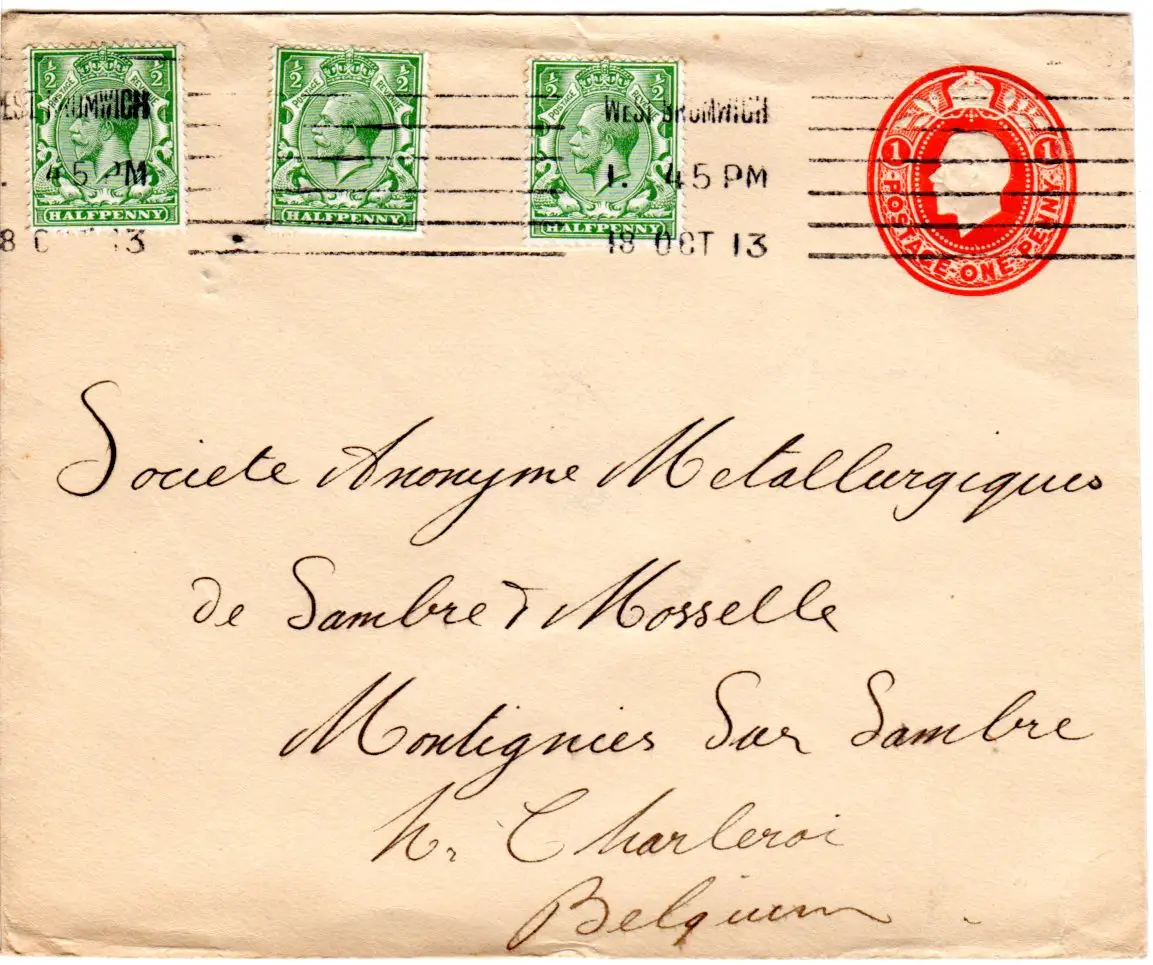 ½ ½
POSTAGE REVENUE
HALFPENNY
½ ½
POSTAGE REVENUE
HALFPENNY
½ ½
POSTAGE REVENUE
HALFPENNY
EST BROMWICH
45 PM
8 OCT 13
WEST BROMWICH
1. 45 PM
18 OCT 13
1 1
POSTAGE-ONE-PENNY
Societe Anonyme Metallurgiques
de Sambre & Mosselle
Montignies Sur Sambre
Nr Charleroi
Belgium